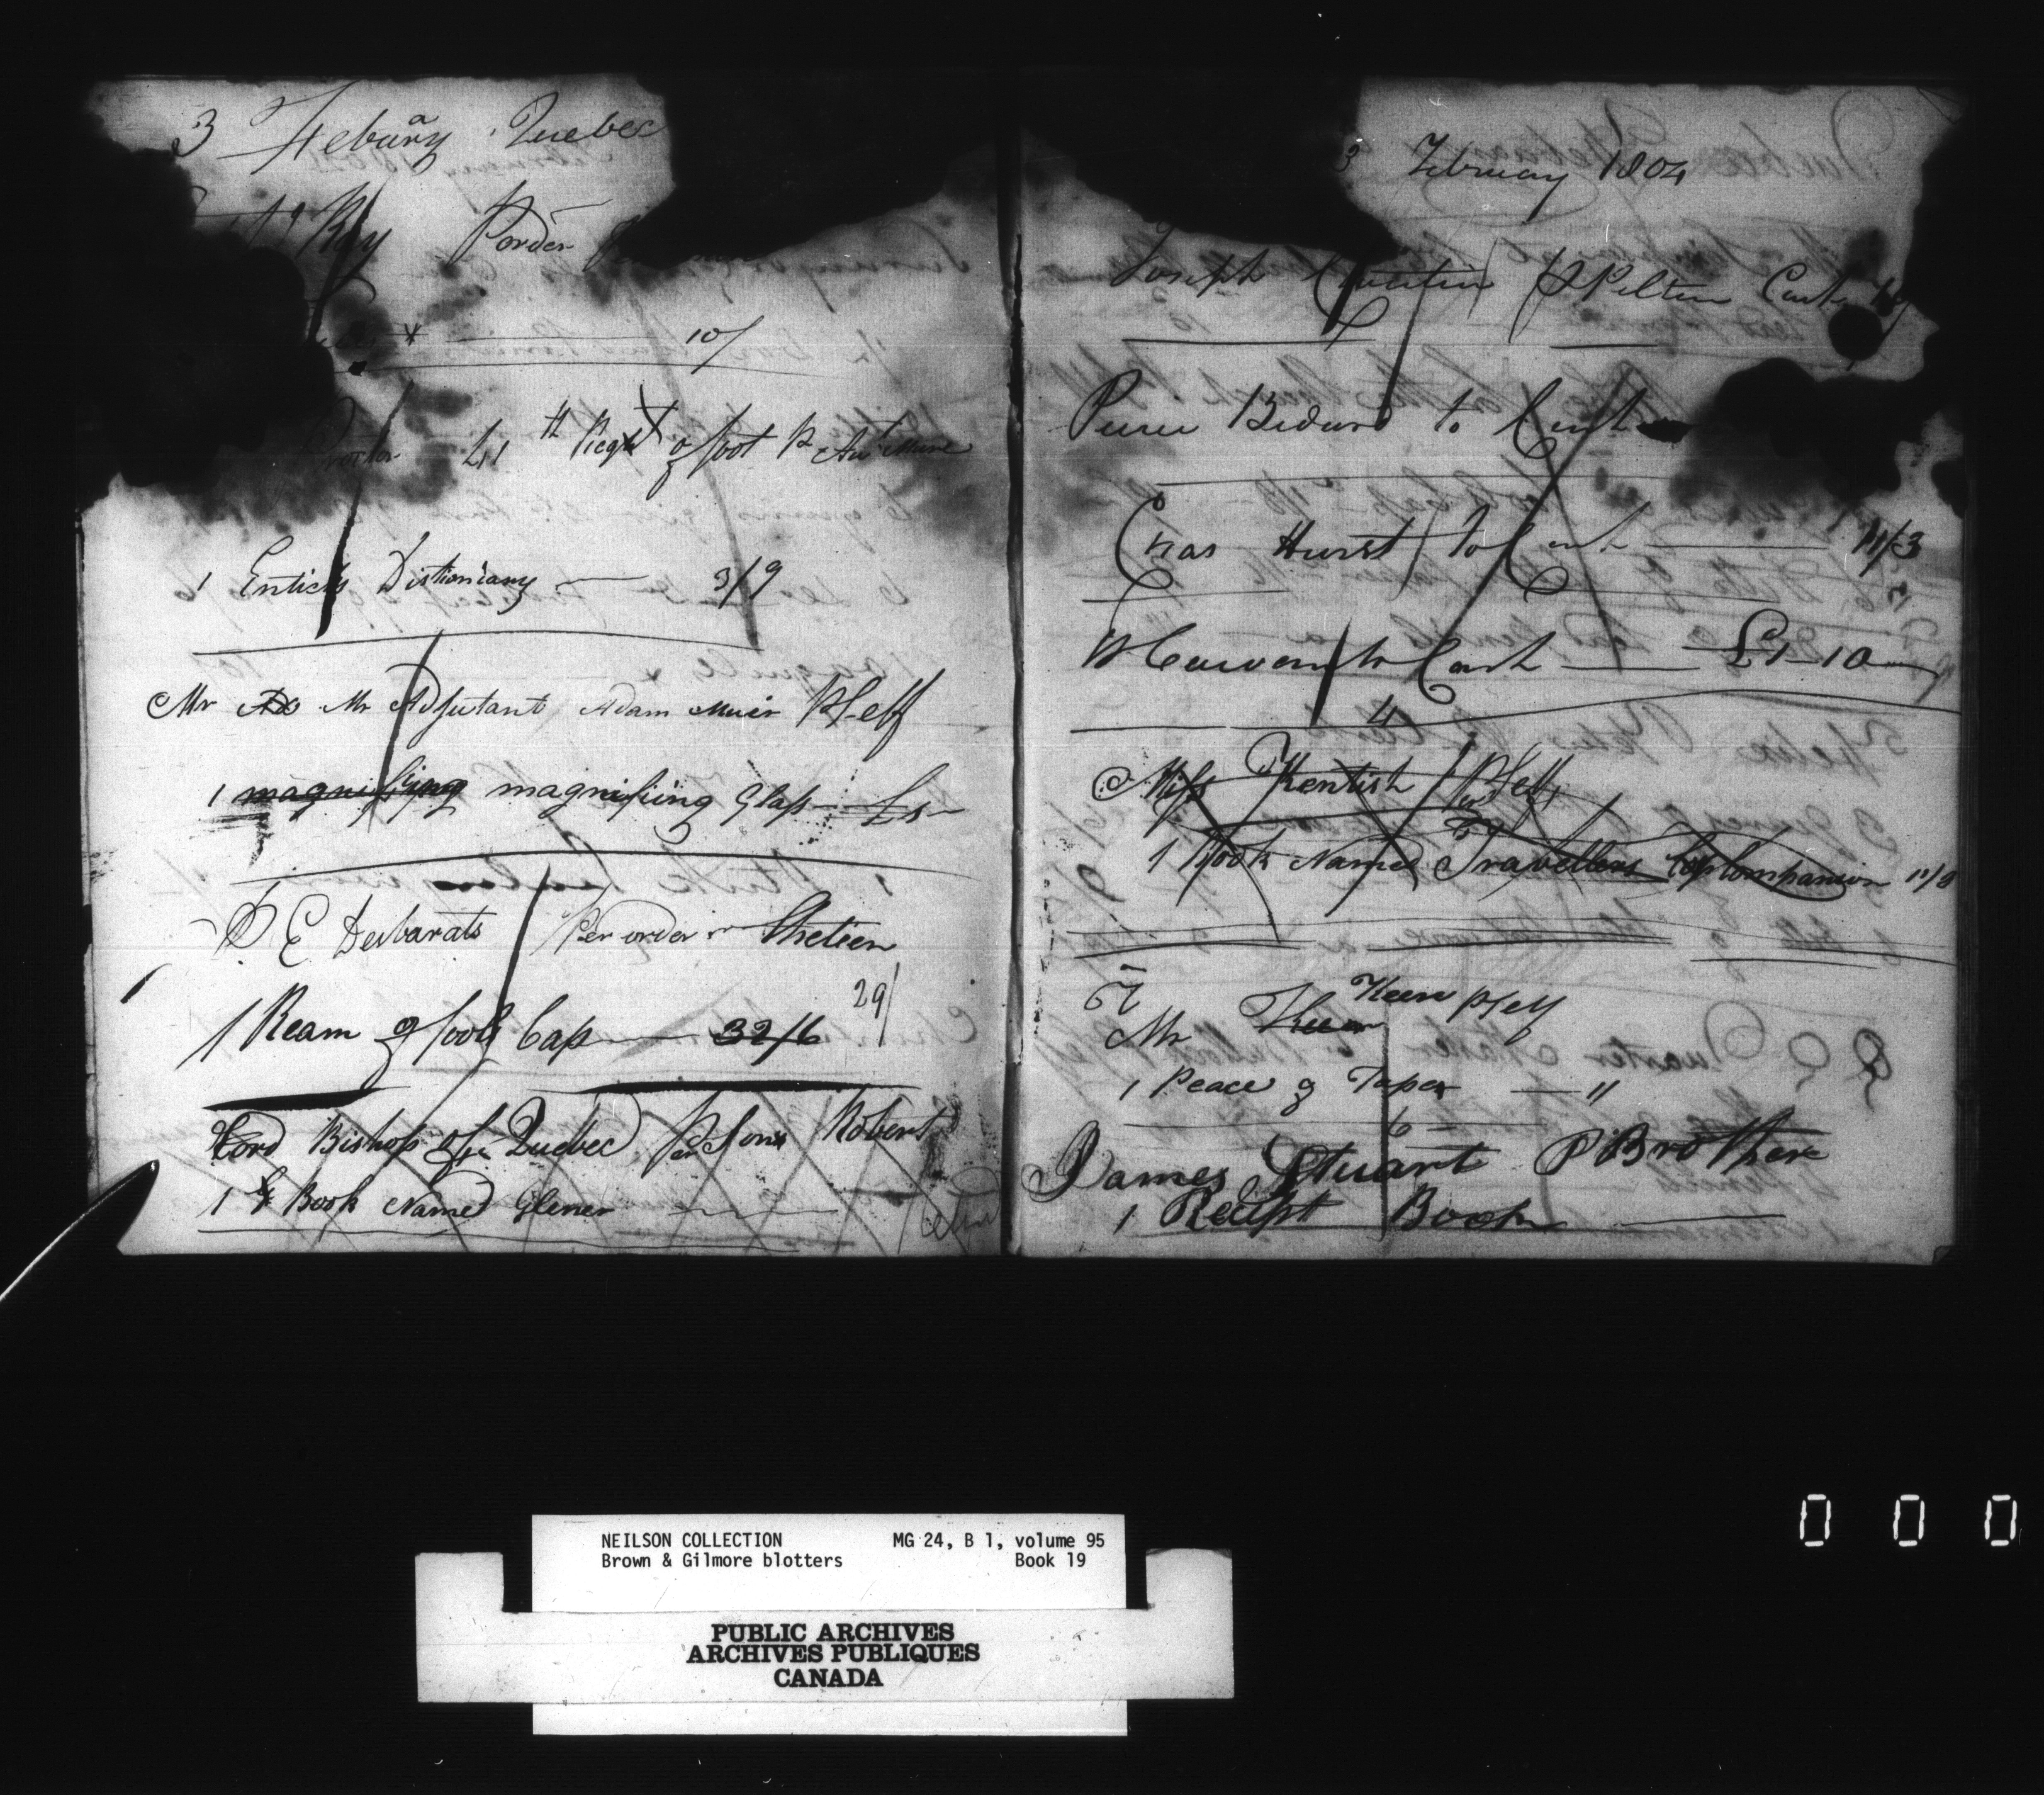 3 Febuary Quebec
Ray Porder
10/
Proctor 41th Regt of foot P Aut Muire
1 Enticks Distionary 3/9
Mr Ad Mr Adjutant Adam Muir P Self
1 magnifiing magnifiing Glass £1
P E Desbarats Per order
1 Ream of fools Cap 32/6 29/
Lord Bishop of Quebec Per Sons Robert
1 Book Named Glener
3 February 1804
Joseph P Pelten Cart
Pierre Bedard to Cash
Chas Hurst To Cash 11/3
to Cash £1-10
4
Miss Kentish Per Self
1 Book Named Travellers Companion 11/9
Mr Keen P Self
1 Peace of Taper "
6
James Stuart P Brother
1 Recipt Book
NEILSON COLLECTION MG 24, B 1, volume 95
Brown & Gilmore blotters Book 19
PUBLIC ARCHIVES
ARCHIVES PUBLIQUES
CANADA
0 0 0